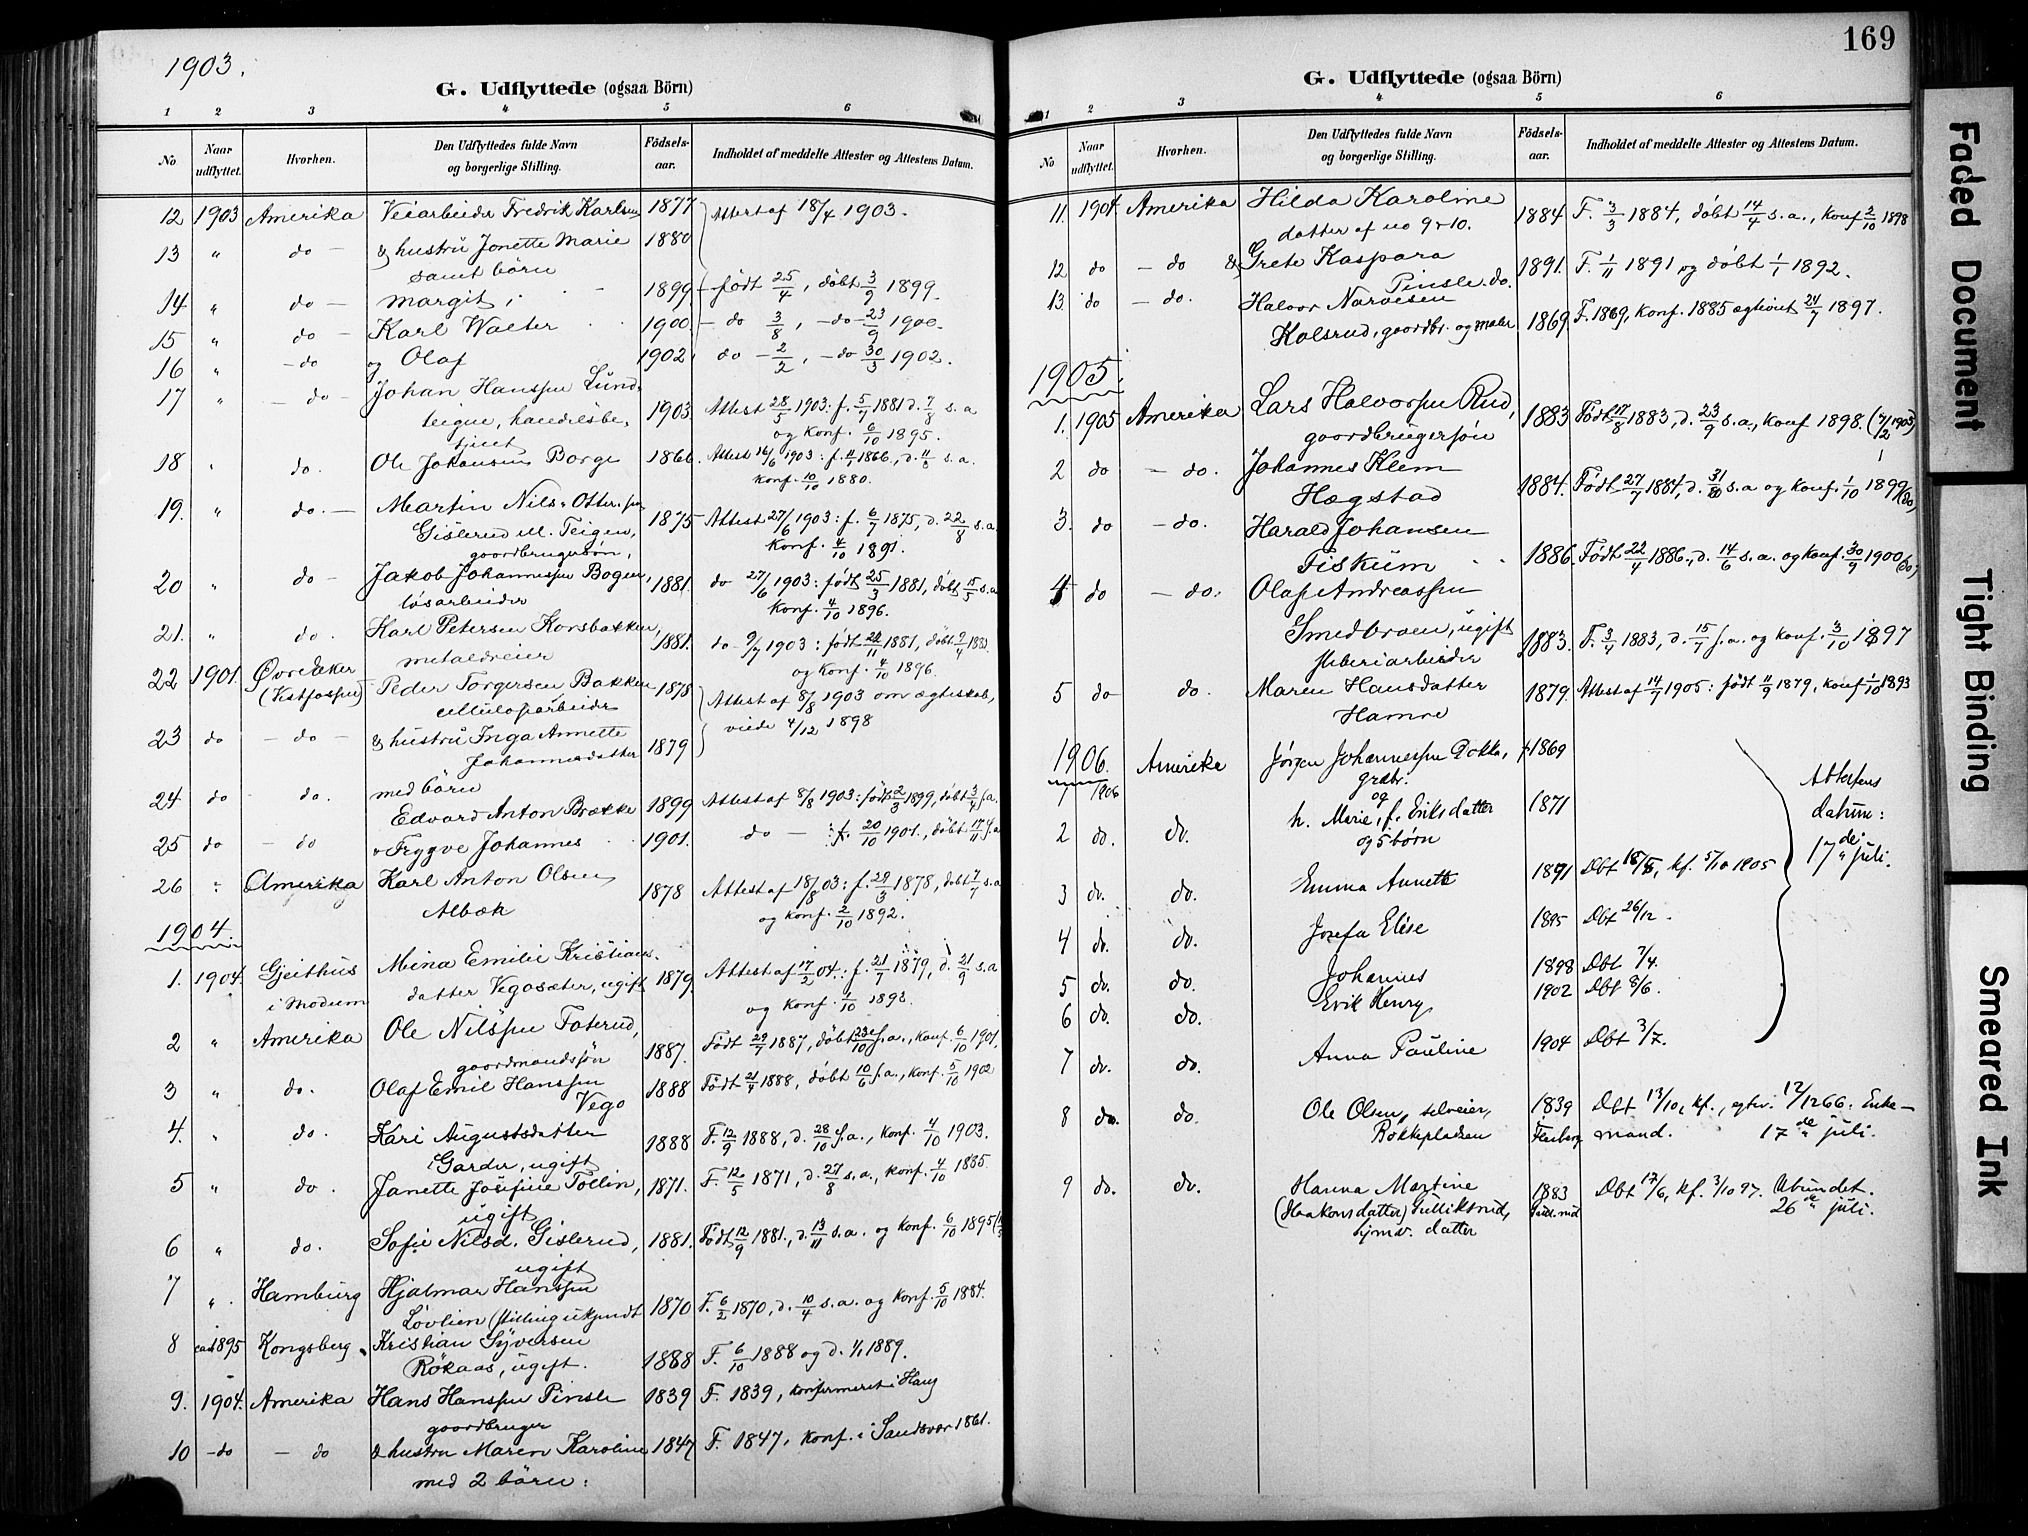 1903.
G. Udflyttede (ogsaa Börn)
1 2 3 4 5 6
No Naar udflyttet. Hvorhen. Den Udflyttedes fulde Navn og borgerlige Stilling. Fødsels-aar. Indholdet af meddelte Attester og Attestens Datum.
12 1903 Amerika Veiarbeider Fredrik Karlsen 1877 Attest af 18/4 1903.
13 " do - & hustru Jonette Marie 1880
samt børn
14 " do - Margit, 1899 - født 25/4, døbt 3/9 1899.
15 " do - Karl Walter 1900 - do 3/8, - do 23/9 1900.
16 " - do og Olaf 1902 do - 2/2, - do 30/3 1902.
17 " - do - Johan Hanssen Lund-
teigen, handelsbe- 1903 Attest 28/5 1903: f. 5/7 1881 d. 7/8 s. a
tjent og Konf. 6/10 1895.
18 " do. Ole Johansen Borge 1866 Attest 16/6 1903: f. 11/1 1866, d. 11/3 s. a.
Konf. 10/10 1880.
19. " do. - Martin Nils-Otter-sen
Gislerud M. Teigen, 1875 Attest 27/6 1903: f. 6/7 1875, d. 22/8 s. a.
gaardbrugersøn, Konf. 4/10 1891.
20 " do - Jakob Johannessen Bogen, 1881. do 27/6 1903: født 25/3 1881, døbt 15/5 s. a
løsarbeider Konf. 4/10 1896.
21. " do. Karl Petersen Korsbakken, 1881. do 9/7 1903: født 22/11 1881, døbt 9/4 1882.
metaldreier og Konf. 4/10 1896.
22 1901. Øvre Eker Peder Torgersen Bakken 1878 Attest af 8/8 1903 om ægteskab,
(Vestfossen) cellulosearbeider viede 4/12 1898
23 do - do - & hustru Inga Annette 1879
Johannesdatter
24. do do. med børn
Edvard Anton Brække 1899 Attest af 8/8 1903: født 2/3 1899, døbt 3/4 s. a.
25 do - do & Trygve Johannes 1901. do - : f. 20/10 1901., døbt 17/11 s. a
26 " Amerika Karl Anton Olsen 1878 Attest af 18/8 03: f. 29/3 1878, døbt 7/7 s. a
Albæk og Konf. 2/10 1892.
1904.
1. 1904. Gjeithus Mina Emilie Kristians-
i Modum datter Vegosæter, ugift 1879. Attest af 17/2 04.: f. 21/7 1879, d. 21/9 s. a
og Konf. 1/10 1893.
2 " Amerika Ole Nilssen Foterud,
gaardmandssøn 1887. Født 29/7 1887, døbt 23/10 s. a., Konf. 6/10 1901.
3 " do. Olaf Emil Hanssen 1888 Født 21/4 1888, døbt 10/6 s. a., Konf. 5/10 1902
Vego
4. " do. Kari Augustsdatter 1888 F. 12/9 1888, d. 28/10 s. a., Konf. 4/10 1903.
Garder, ugift
5 " do. Janette Josefine Tollin, 1871. F. 12/5 1871, d. 27/8 s. a., Konf. 4/10 1885.
ugift
6 " do. Sofie Nilsd. Gislerud, 1881. Født 12/9 1881., d. 13/11 s. a. og Konf. 6/10 1895
ugift
7 " Hamburg Hjalmar Hanssen
Løvlien (stilling ukjendt 1870 F. 6/2 1870, d. 10/4 s. a. og Konf. 5/10 1884.
8 ca 1895 Kongsberg Kristian Syversen
Røkaas, ugift. 1888 F. 6/10 1888 og d. 1/1 1889.
9. 1904. Amerika Hans Hanssen Pinsle 1839 F. 1839, konfirmeret i Haug
gaardbruger
10 - do - do & hustru Maren Karoline 1847 F. 1847, Konf. i Sandsvær 1861.
med 2 børn:
169
G. Udflyttede (ogsaa Börn)
1 2 3 4 5 6
No Naar udflyttet. Hvorhen. Den Udflyttedes fulde Navn og borgerlige Stilling. Fødsels-aar. Indholdet af meddelte Attester og Attestens Datum.
11. 1904. Amerika Hilda Karoline 1884 F. 3/3 1884, døbt 14/4 s. a., konf 2/10 1898
datter af no 9 & 10.
12 do - do & Grete Kaspara 1891. F. 1/11 1891 og døbt 1/1 1892.
Pinsle. do.
13. do - do. Halvor Narvesen
Kolsrud, gaardbr. og maler 1869 F. 1869, Konf. 1885 ægteviet 24/7 1897.
1905.
1. 1905 Amerika Lars Halvorsen Rud, 1883 Født 17/8 1883, d. 23/9 s. a., Konf 1898. (7/2 1905)
gaardbrugersøn
2 do - do. Johannes Klem
Hægstad 1884. Født 27/7 1884, d. 31/10 s. a og Konf. 1/10 1899 (do)
3. do - do. Harald Johansen
Fiskum 1886. Født 22/4 1886., d. 14/6 s. a. og Konf. 30/9 1900 (do)
4 do - do. Olaf Andreassen
Smedbraen, ugift 1883. F. 3/4 1883, d. 15/7 s. a. og Konf. 3/10 1897
sliberiarbeider
5 do do. Maren Hansdatter 1879. Attest af 14/7 1905: født 11/9 1879, konf 1/10 1893
Hamre
1906. Amerika Jørgen Johannessen Dokka, f 1869
1 1906 grdbr.
og
2 do. do. h. Marie, f. Eriksdatter 1871
og 5 børn
Attestens
datum:
17de juli.
3 do. do. Emma Annette 1891 Dbt 18/5, kf. 5/10 1905
4 do. do. Josefa Elise 1895 Dbt 26/12.
5 do. do. Johannes 1898 Dbt 7/4.
6 do. do. Erik Henry 1902 Dbt 8/6.
7 do. do. Anna Pauline 1904 Dbt 3/7.
8 do. do. Ole Olsen, selveier, 1839 Dbt 13/10, kf., egtev. 12/12 66. Enke-
Bakkepladsen Flesberg mand. 17de juli.
9 do. do. Hanna Martine 1883 Dbt 17/6, kf. 3/10 97. Ubundet.
(Haakonsdatter) Gulliksrud, 26de juli.
datter
Faded Document
Tight Binding
Smeared Ink